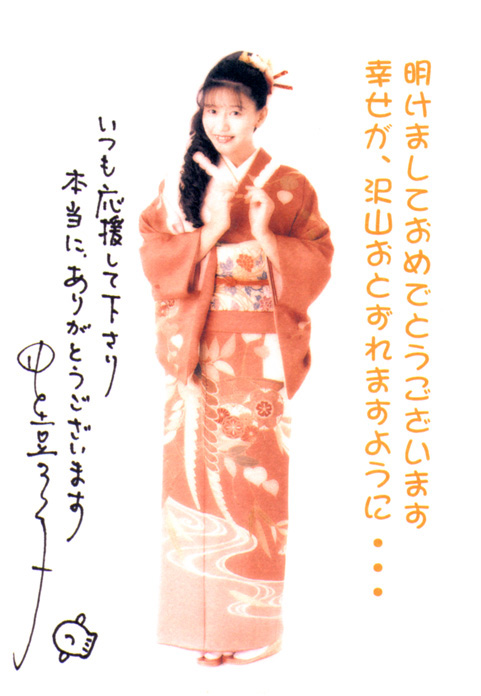 明けましておめでとうございます
幸せが、沢山おとずれますように・・・
いつも応援して下さり
本当に、ありがとうございます